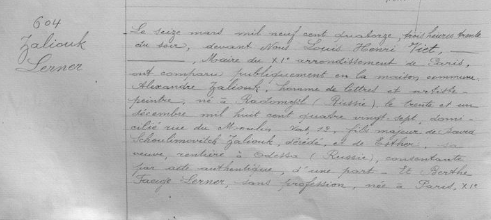 604
Zaliouk
Lerner
Le seize mars mil neuf cent quatorze, trois heures trente
du soir, devant Nous Louis Henri
Maire du XIe arrondissement de Paris,
ont comparu publiquement en la maison commune
Alexandre Zaliouk, homme de lettres et artiste-
peintre, né à Radomysl (Russie), le trente et un
décembre mil huit cent quatre vingt sept, domi-
cilié rue du Moulin Vert, 22, fils majeur de David
Zaliouk, décédé, et de Esther, sa
veuve, rentière à Odessa (Russie), consentante
par acte authentique, d'une part - Et Berthe
Lerner, sans profession, née à Paris, XIe